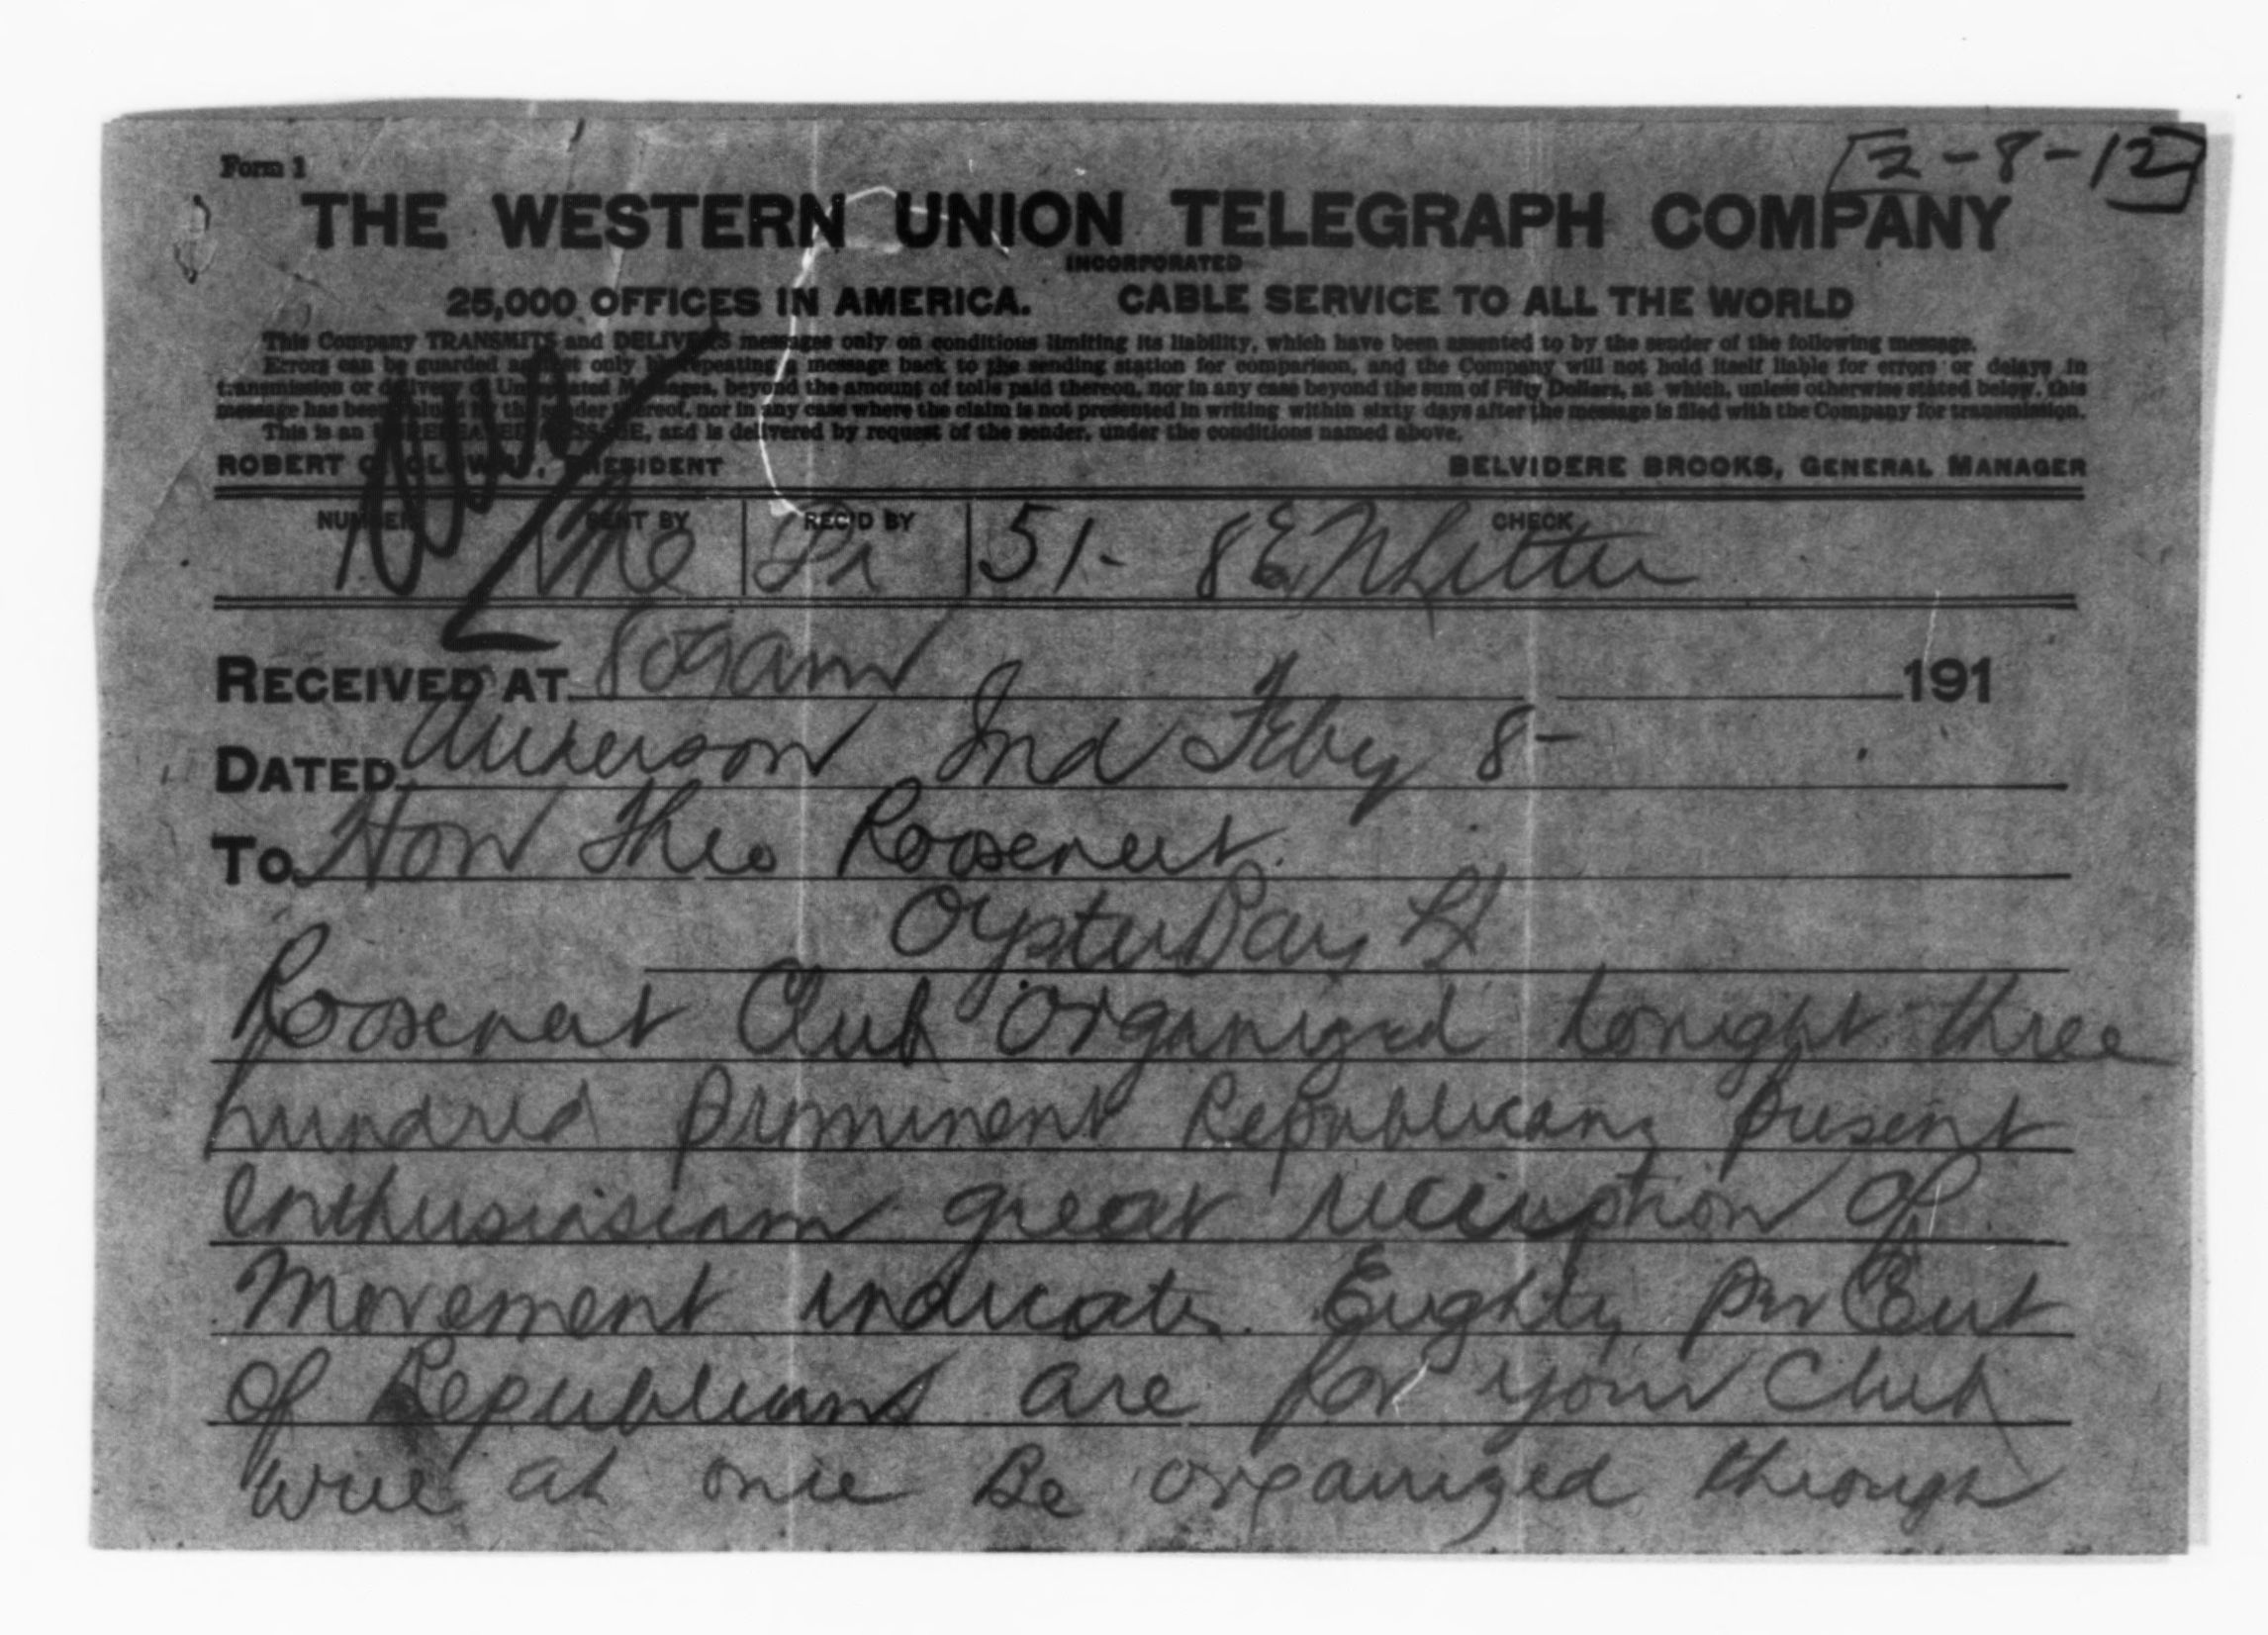 [2-8-12]
Form 1
THE WESTERN UNION TELEGRAPH COMPANY
INCORPORATED
25,000 OFFICES IN AMERICA. CABLE SERVICE TO ALL THE WORLD
This Company TRANSMITS and DELIVERS messages only on conditions limiting its liability, which have been assented to by the sender of the following message.
Errors can be guarded against only by repeating a message back to the sending station for comparison, and the Company will not hold itself liable for errors or delays in
transmission or delivery of Unrepeated Messages, beyond the amount of tolls paid thereon, nor in any case beyond the sum of Fifty Dollars, at which, unless otherwise stated below, this
message has been valued by the sender thereof, nor in any case where the claim is not presented in writing within sixty days after the message is filed with the Company for transmission.
This is an UNREPEATED MESSAGE, and is delivered by request of the sender, under the conditions named above.
ROBERT C. CLOWRY, PRESIDENT BELVIDERE BROOKS, GENERAL MANAGER
NUMBER SENT BY REC'D BY CHECK
51-
RECEIVED AT 191
DATED Anderson Ind Feby 8-
To Hon Theo Roosevelt.
Oyster Bay LI
Roosevelt Club Organized tonight three
hundred prominent Republicans present
Enthusiasiam great reception of
Movement indicate Eighty per Cent
of Republicans are for your Club
will at once Be organized through